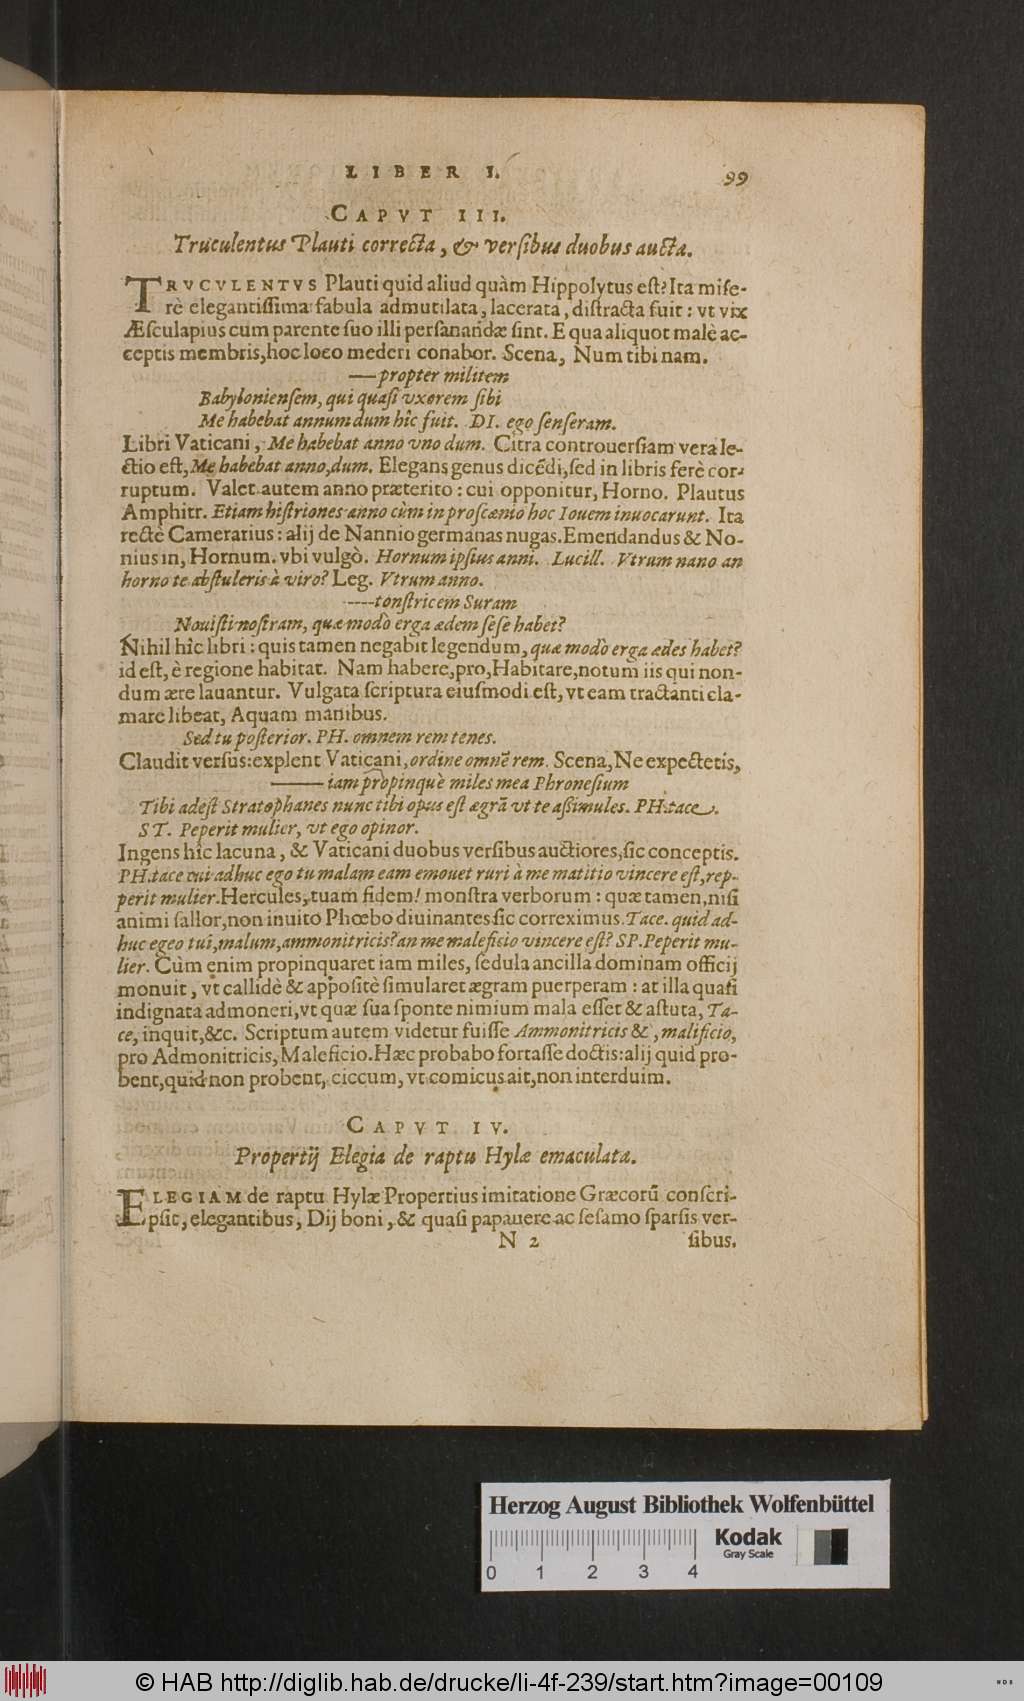 LIBER I. 99
CAPVT III.
Truculentus Plauti correcta, & versibus duobus aucta.
TRVCVLENTVS Plauti quid aliud quàm Hippolytus est? Ita mise-
rè elegantissima fabula admutilata, lacerata, distracta fuit: vt vix
Æsculapius cum parente suo illi persanandæ sint. E qua aliquot malè ac-
ceptis membris, hoc loco mederi conabor. Scena, Num tibi nam.
—propter militem
Babyloniensem, qui quasi vxorem sibi
Me habebat annum dum hîc fuit. DI. ego senseram.
Libri Vaticani, Me habebat anno vno dum. Citra controuersiam vera le-
ctio est, Me habebat anno, dum. Elegans genus dicēdi, sed in libris ferè cor-
ruptum. Valet autem anno præterito: cui opponitur, Horno. Plautus
Amphitr. Etiam histriones anno cùm in proscænio hoc Iouem inuocarunt. Ita
rectè Camerarius: alij de Nannio germanas nugas. Emendandus & No-
nius in, Hornum. vbi vulgò. Hornum ipsius anni. Lucill. Vtrum nano an
horno te abstuleris à viro? Leg. Vtrum anno.
----tonstricem Suram
Nouisti nostram, quæ modò erga ædem sese habet?
Nihil hîc libri: quis tamen negabit legendum, quæ modò erga ædes habet?
id est, è regione habitat. Nam habere, pro, Habitare, notum iis qui non-
dum ære lauantur. Vulgata scriptura eiusmodi est, vt eam tractanti cla-
mare libeat, Aquam manibus.
Sed tu posterior. PH. omnem rem tenes.
Claudit versus: explent Vaticani, ordine omnē rem. Scena, Ne expectetis,
—— iam propinquè miles mea Phronesium
Tibi adest Stratophanes nunc tibi opus est ægrā vt te assimules. PH. tace.
ST. Peperit mulier, vt ego opinor.
Ingens hîc lacuna, & Vaticani duobus versibus auctiores, sic conceptis.
PH. tace cui adhuc ego tu malam eam emouet ruri à me matitio vincere est, rep-
perit mulier. Hercules, tuam fidem! monstra verborum: quæ tamen, nisi
animi fallor, non inuito Phœbo diuinantes sic correximus. Tace. quid ad-
huc egeo tui, malum, ammonitricis? an me maleficio vincere est? SP. Peperit mu-
lier. Cùm enim propinquaret iam miles, sedula ancilla dominam officij
monuit, vt callidè & appositè simularet ægram puerperam: at illa quasi
indignata admoneri, vt quæ sua sponte nimium mala esset & astuta, Ta-
ce, inquit, &c. Scriptum autem videtur fuisse Ammonitricis &, malificio,
pro Admonitricis, Maleficio. Hæc probabo fortasse doctis: alij quid pro-
bent, quid non probent, ciccum, vt comicus ait, non interduim.
CAPVT IV.
Propertij Elegia de raptu Hylæ emaculata.
ELEGIAM de raptu Hylæ Propertius imitatione Græcorū conscri-
psit, elegantibus, Dij boni, & quasi papauere ac sesamo sparsis ver-
N 2 sibus.
Herzog August Bibliothek Wolfenbüttel
Kodak
Gray Scale
0 1 2 3 4
© HAB http://diglib.hab.de/drucke/li-4f-239/start.htm?image=00109